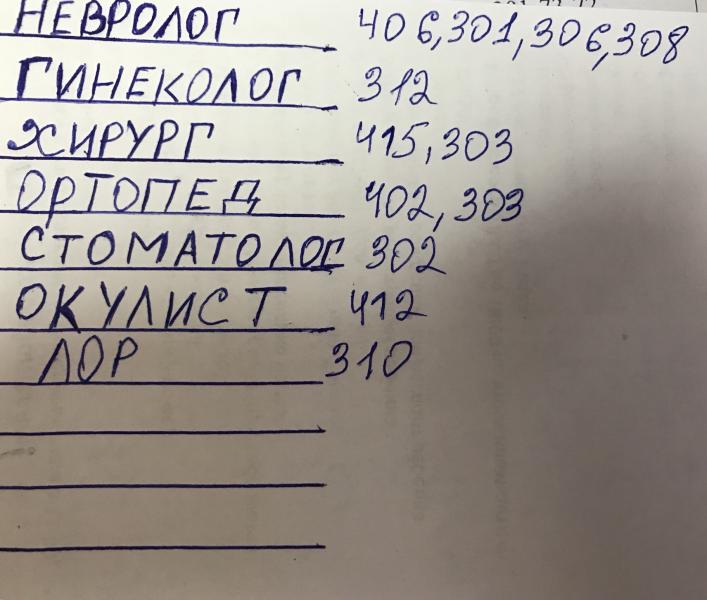 НЕВРОЛОГ 406,301,306,308
ГИНЕКОЛОГ 312
ХИРУРГ 415,303
ОРТОПЕД 402,303
СТОМАТОЛОГ 302
ОКУЛИСТ 412
ЛОР 310